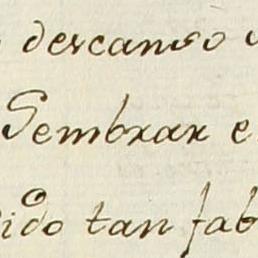 descanso
Sembrar e
tan fab